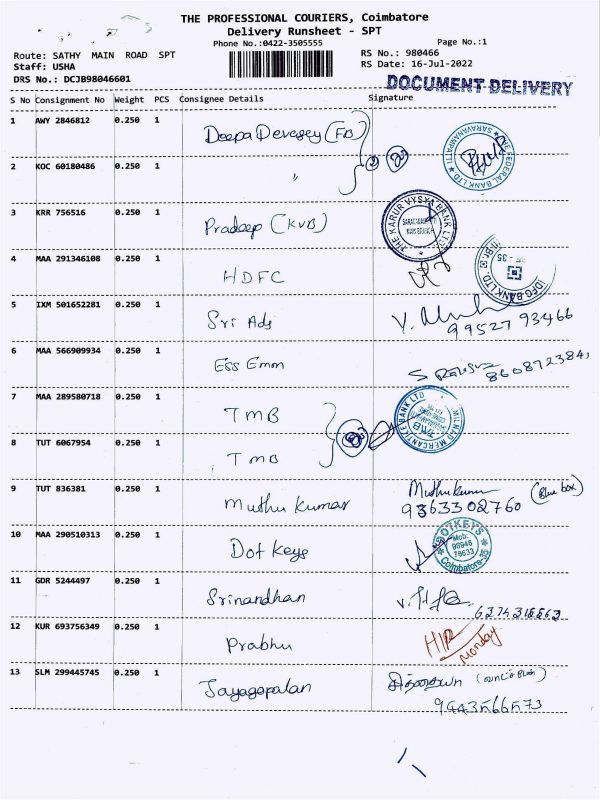 THE PROFESSIONAL COURIERS, Coimbatore
Delivery Runsheet - SPT
Phone No.:0422-3505555
Page No.:1
Route: SATHY MAIN ROAD SPT
RS No.: 980466
Staff: USHA
RS Date: 16-Jul-2022
DRS No.: DCJB98046601
DOCUMENT DELIVERY
S No Consignment No Weight PCS Consignee Details Signature
1 AWY 2846812 0.250 1 Deepa Devasey (FB)
THE FEDERAL BANK LTD SARAVANAMPATTI
2 KOC 60180486 0.250 1 "
3 KRR 756516 0.250 1 Pradeep (KVB)
THE KARUR VYSYA BANK LTD
4 MAA 291346108 0.250 1 HDFC
IDFC BANK LTD.
5 IXM 501652281 0.250 1 Sri Ads
99527 93466
6 MAA 566909934 0.250 1 Ess Emm
7 MAA 289580718 0.250 1 TMB
TAMILNAD MERCANTILE BANK LTD
TMB
8 TUT 6067954 0.250 1 TMB
9 TUT 836381 0.250 1 Muthu Kumar Muthukumar (Blue box)
9363302760
10 MAA 290510313 0.250 1 Dot Keys
DOTKEYS
Mob:
90946
76633
Coimbatore-35
11 GDR 5244497 0.250 1 Srinandhan
6374316563
12 KUR 693756349 0.250 1 Prabhu
Monday
13 SLM 299445745 0.250 1 Jayagopalan
9443566573